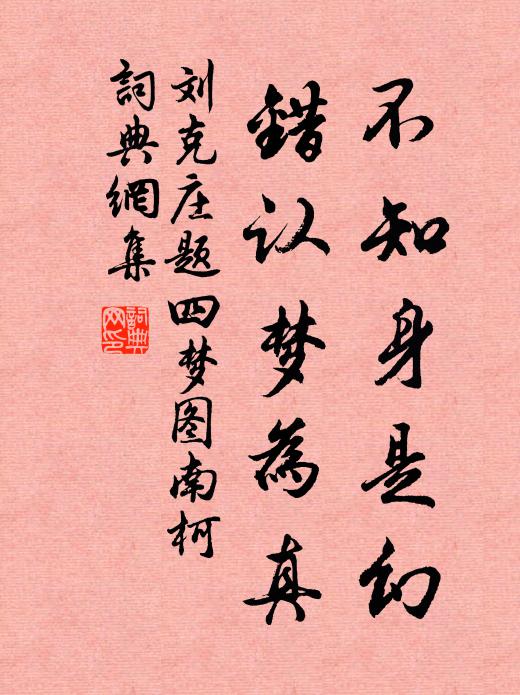 不知身是幻
錯认梦為真
刘克庄题四梦图南柯
詞典網集
詞典网印